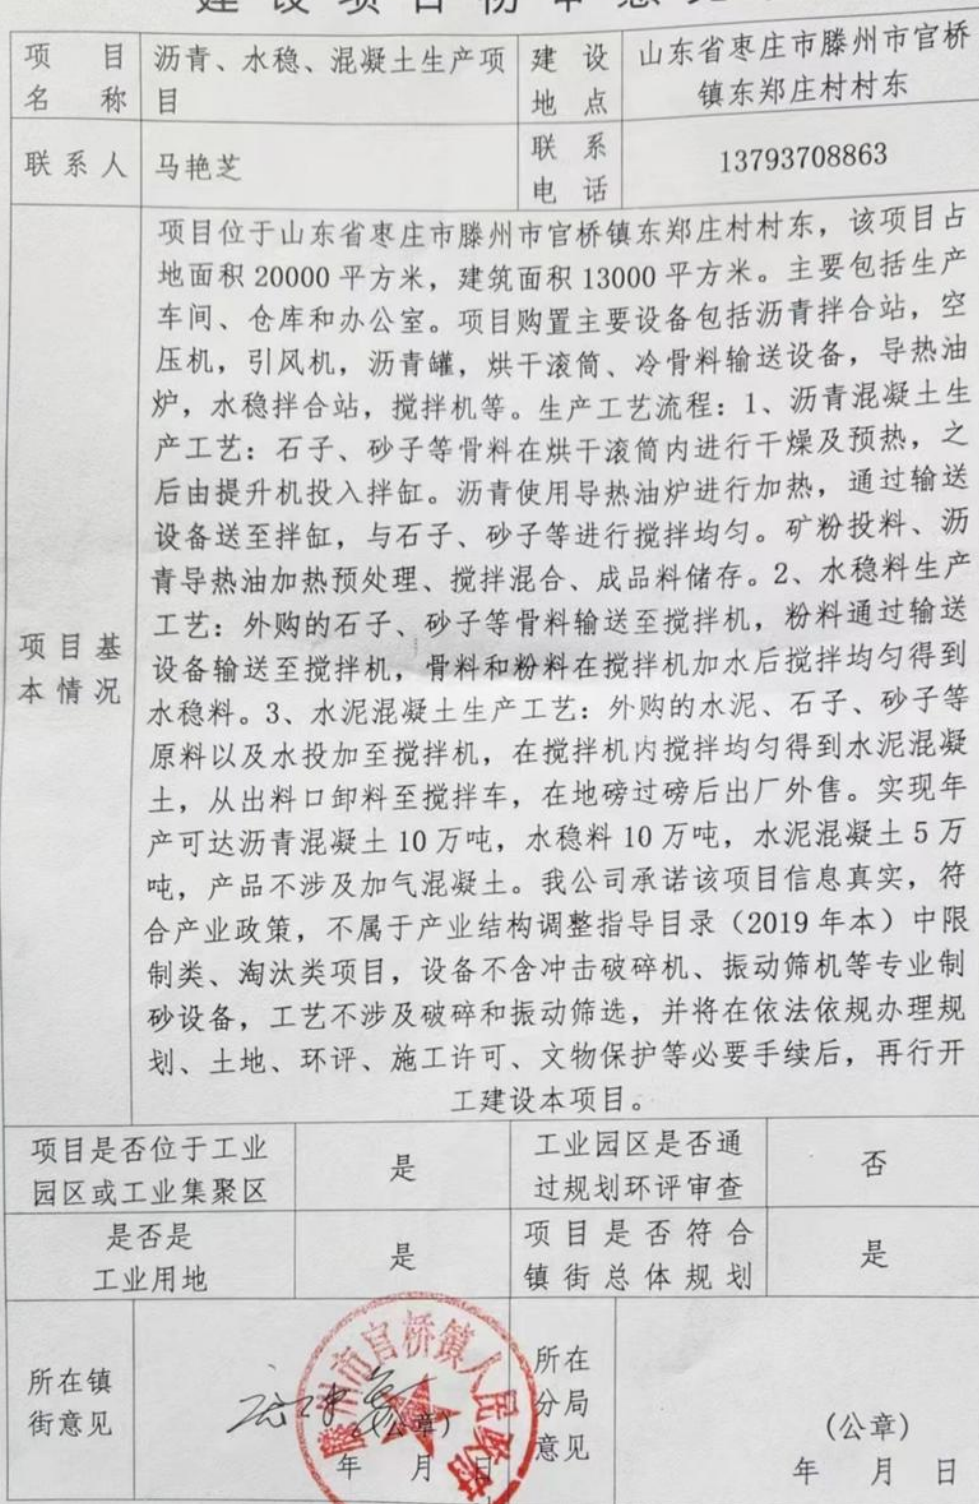 建设项目初审意见
项 目 沥青、水稳、混凝土生产项 建 设 山东省枣庄市滕州市官桥
名 称 目 地 点 镇东郑庄村村东
联系人 马艳芝 联 系 13793708863
电 话
项目位于山东省枣庄市滕州市官桥镇东郑庄村村东，该项目占
地面积 20000 平方米，建筑面积 13000 平方米。主要包括生产
车间、仓库和办公室。项目购置主要设备包括沥青拌合站，空
压机，引风机，沥青罐，烘干滚筒、冷骨料输送设备，导热油
炉，水稳拌合站，搅拌机等。生产工艺流程：1、沥青混凝土生
产工艺：石子、砂子等骨料在烘干滚筒内进行干燥及预热，之
后由提升机投入拌缸。沥青使用导热油炉进行加热，通过输送
设备送至拌缸，与石子、砂子等进行搅拌均匀。矿粉投料、沥
青导热油加热预处理、搅拌混合、成品料储存。2、水稳料生产
工艺：外购的石子、砂子等骨料输送至搅拌机，粉料通过输送
项目基 设备输送至搅拌机，骨料和粉料在搅拌机加水后搅拌均匀得到
本情况 水稳料。3、水泥混凝土生产工艺：外购的水泥、石子、砂子等
原料以及水投加至搅拌机，在搅拌机内搅拌均匀得到水泥混凝
土，从出料口卸料至搅拌车，在地磅过磅后出厂外售。实现年
产可达沥青混凝土 10 万吨，水稳料 10 万吨，水泥混凝土 5 万
吨，产品不涉及加气混凝土。我公司承诺该项目信息真实，符
合产业政策，不属于产业结构调整指导目录（2019 年本）中限
制类、淘汰类项目，设备不含冲击破碎机、振动筛机等专业制
砂设备，工艺不涉及破碎和振动筛选，并将在依法依规办理规
划、土地、环评、施工许可、文物保护等必要手续后，再行开
工建设本项目。
项目是否位于工业 是 工业园区是否通 否
园区或工业集聚区 过规划环评审查
是否是 是 项目是否符合 是
工业用地 镇街总体规划
滕州市官桥镇人民政府
所在镇 所在
街意见 (公章) 分局 (公章)
年 月 日 意见 年 月 日